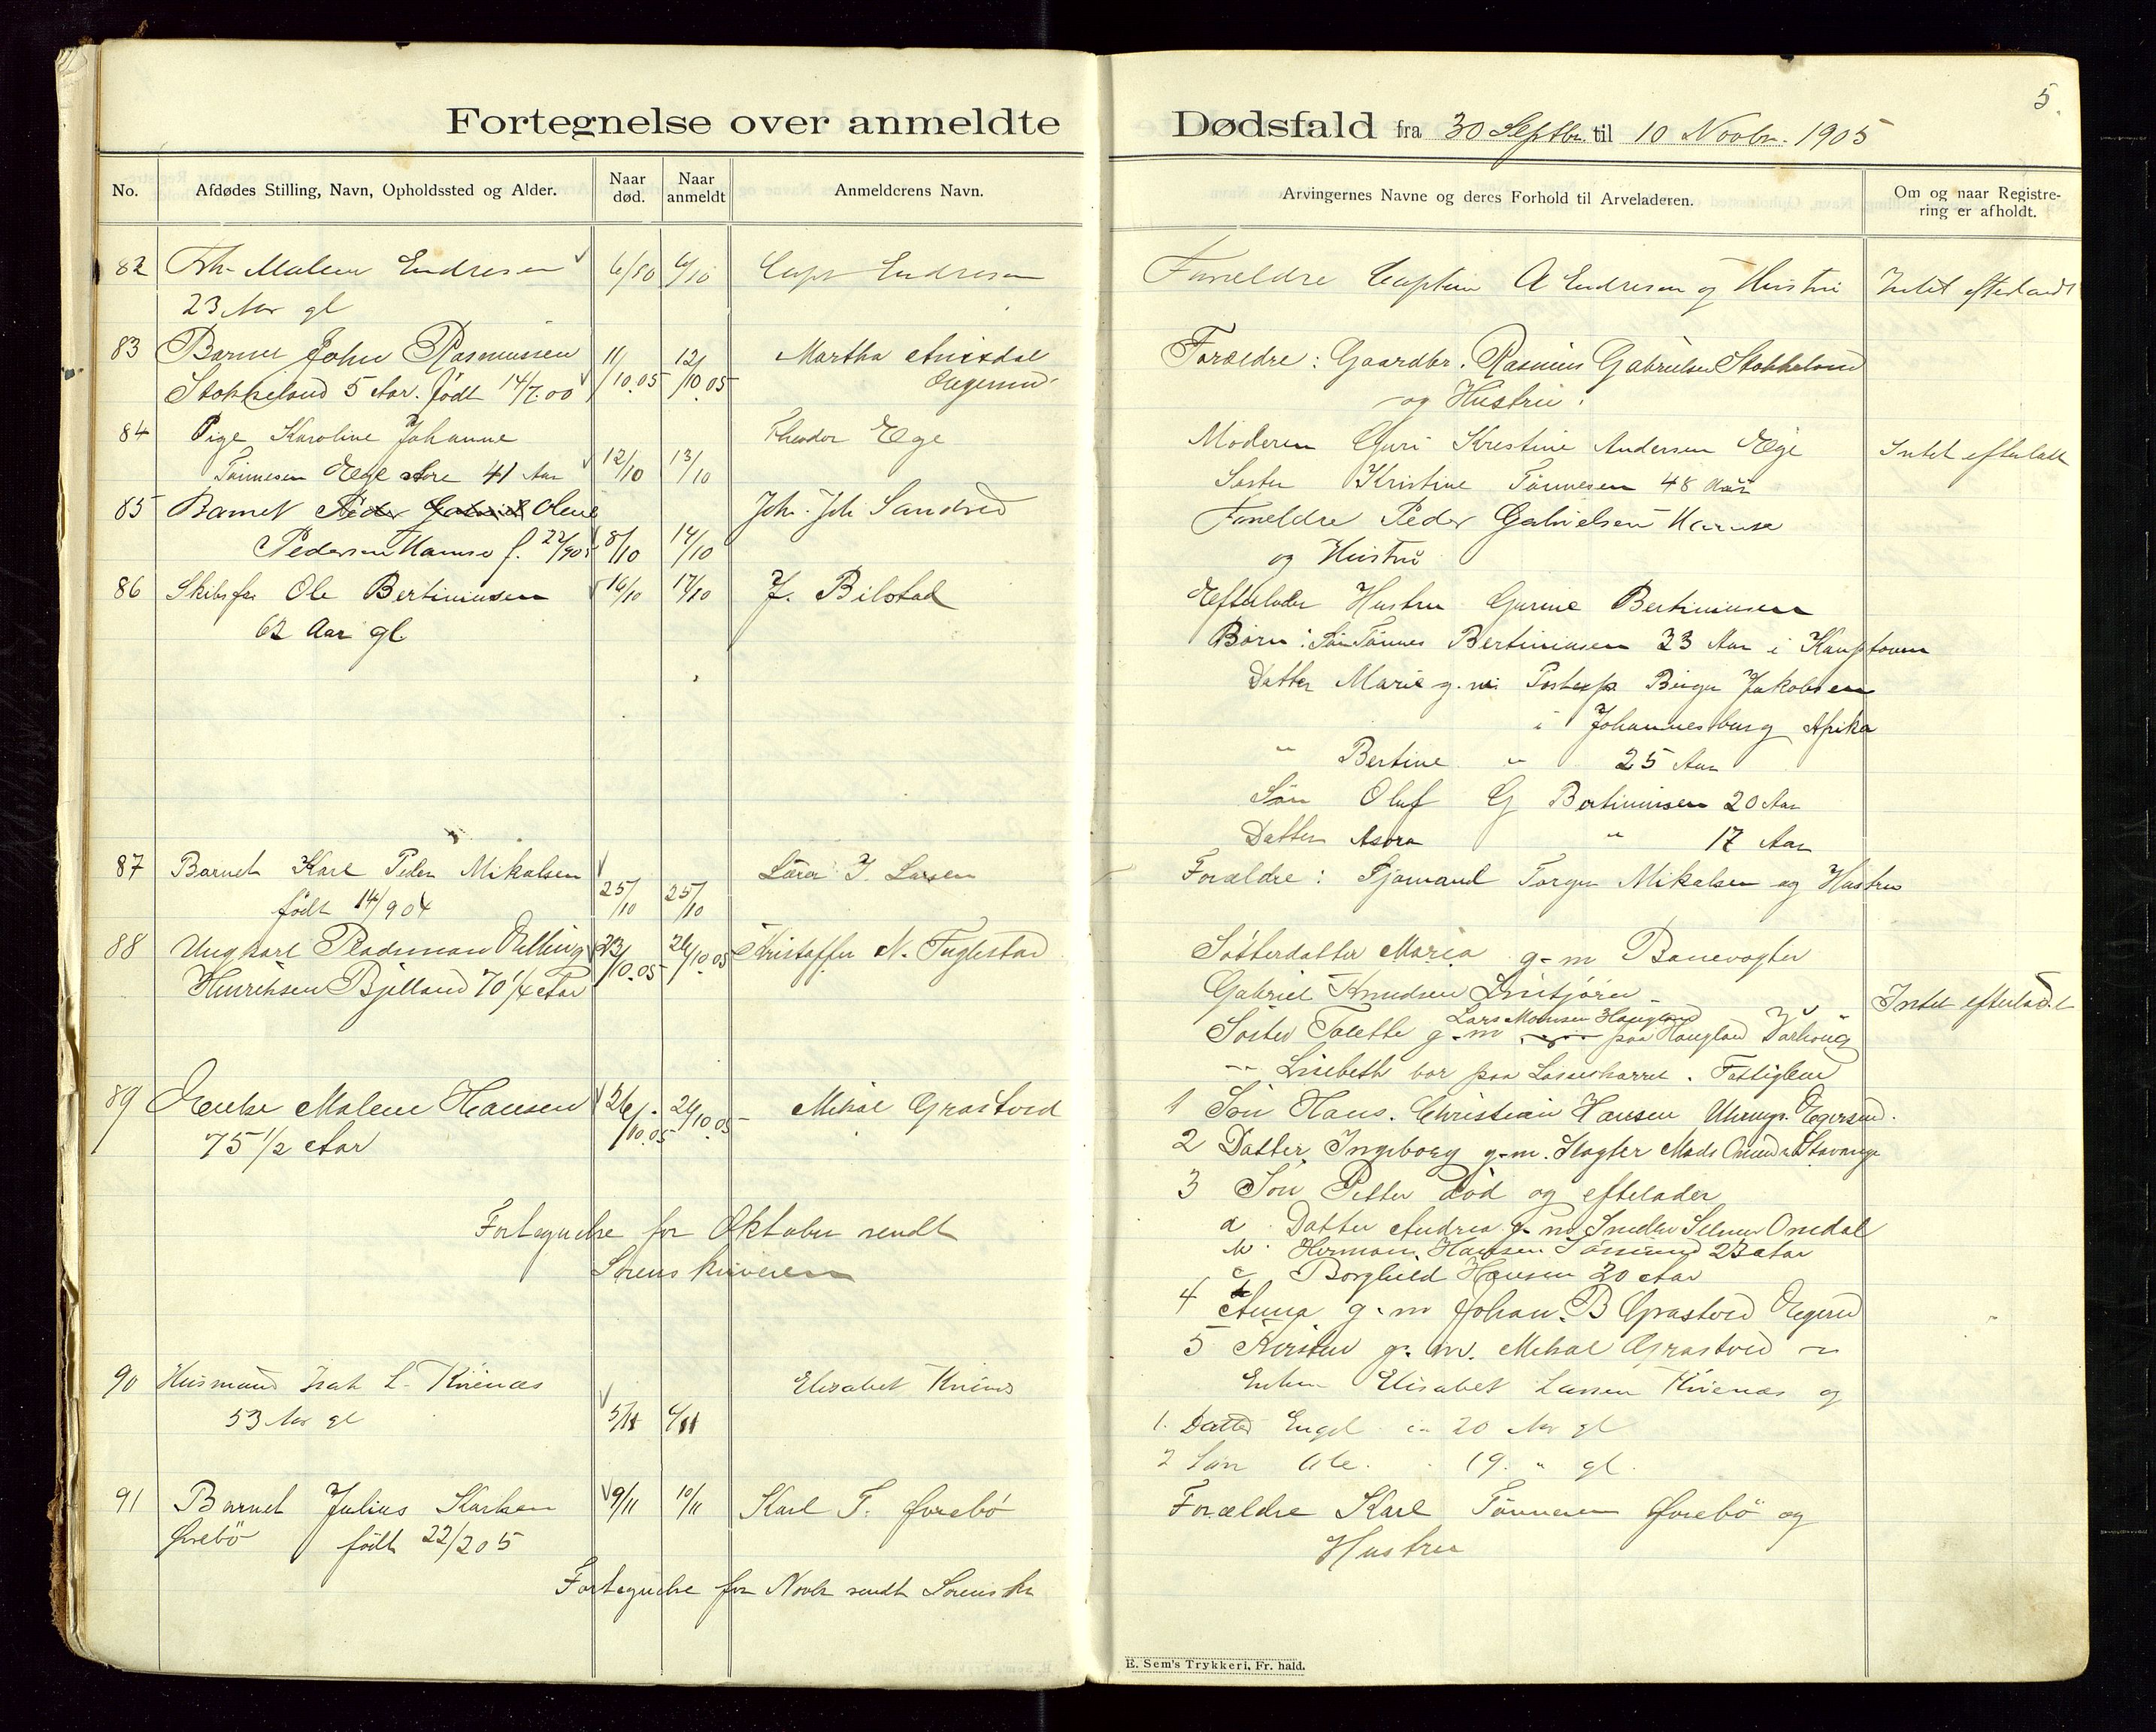 5.
Fortegnelse over anmeldte Dødsfald fra 30 Septbr. til 10 Novbr. 1905
No. Afdødes Stilling, Navn, Opholdssted og Alder. Naar død. Naar anmeldt Anmelderens Navn. Arvingernes Navne og deres Forhold til Arveladeren. Om og naar Registrering er afholdt.
82 Malene Endresen 6/10 6/10 Capt Endresen
23 Aar gl
Forældre Captein A Endresen og Hustru
Intet efterladt
83 Barnet John Rasmussen 11/10.05 12/10.05 Martha
Stokkeland 5 Aar. født 14/7.00 Egersund
Forældre: Gaardbr. Rasmus Gabrielsen Stokkeland
og Hustru.
84 Pige Karoline Johanne Theodor Ege
Tønnesen Ege store 41 Aar 12/10 13/10
Moderen Guri Kristine Andersen Ege
Søster Kristine Tønnesen 48 Aar
Intet efterladt
85 Barnet Peder Gabriel Olene Joh. Joh Sandved
Pedersen Hamse f. 8/10 14/10
Forældre Peder Gabrielsen Hamse
og Hustru
86 Skibsfør Ole Bertiniusen 16/10 17/10 J. Bilstad
62 Aar gl
Efterlader Hustru Gurine Bertiniusen
Børn: Søn Tønnes Bertiniusen 33 Aar i Kaupstoun
Datter Marie g. m. Postexp Birger Jakobsen
i Johannesburg Afrika
" Bertine " 25 Aar
Søn Oluf G Bertiniusen 20 Aar
Datter Asora " 17 Aar
87 Barnet Karl Peder Mikalsen Lærer J. Larsen
født 14/9 04 25/10 25/10
Forældre: Sjømand Torger Mikalsen og Hustru
88 Ungkarl Pladsmand Elling 23/10.05 26/10.05 Kristoffer N. Fuglestad
Henriksen Bjelland 70 1/4 Aar
Søsterdatter Maria g-m Banevogter
Gabriel Knudsen
Lars Monsen Haugland
Søster Tolette g-m paa Haugland Varhoug
" Lisbeth bor paa . Fattiglem
Intet efterladt
89 Enke Malene Hansen 26/10.05 26/10.05 Mikal Grastved
75 1/2 Aar
1 Søn Hans. Christian Hansen Uhrmgr. Egersund.
2 Datter Ingeborg g-m. Slagter Mads Omund Stavanger
3 Søn Petter død og efterlader
a. Datter Andrea g-m Snedker Selmer Omdal
b. Herman Hansen 23 Aar
c Borghild Hansen 20 Aar
4 Anna g-m Johan. B Grastved Egersd
5 Kirsten g. m. Mikal Grastved "
Fortegnelse for Oktober sendt
Sorenskriveren
90 Husmand Isak L. Kninæs Elisabet Kninæs
53 Aar gl 5/11 6/11
Enken Elisabet Larsen Kninæs og
1. Datter Engel ca 20 Aar gl
2 Søn Ole. 19. " gl.
91 Barnet Julius Karlsen 9/11 10/11 Karl T. Øvrebö
Øvrebö født 22/2 05
Forældre Karl Tönnesen Øvrebö og
Hustru
Fortegnelse for Novbr sendt Sorenskr
E. Sem's Trykkeri, Fr. hald.